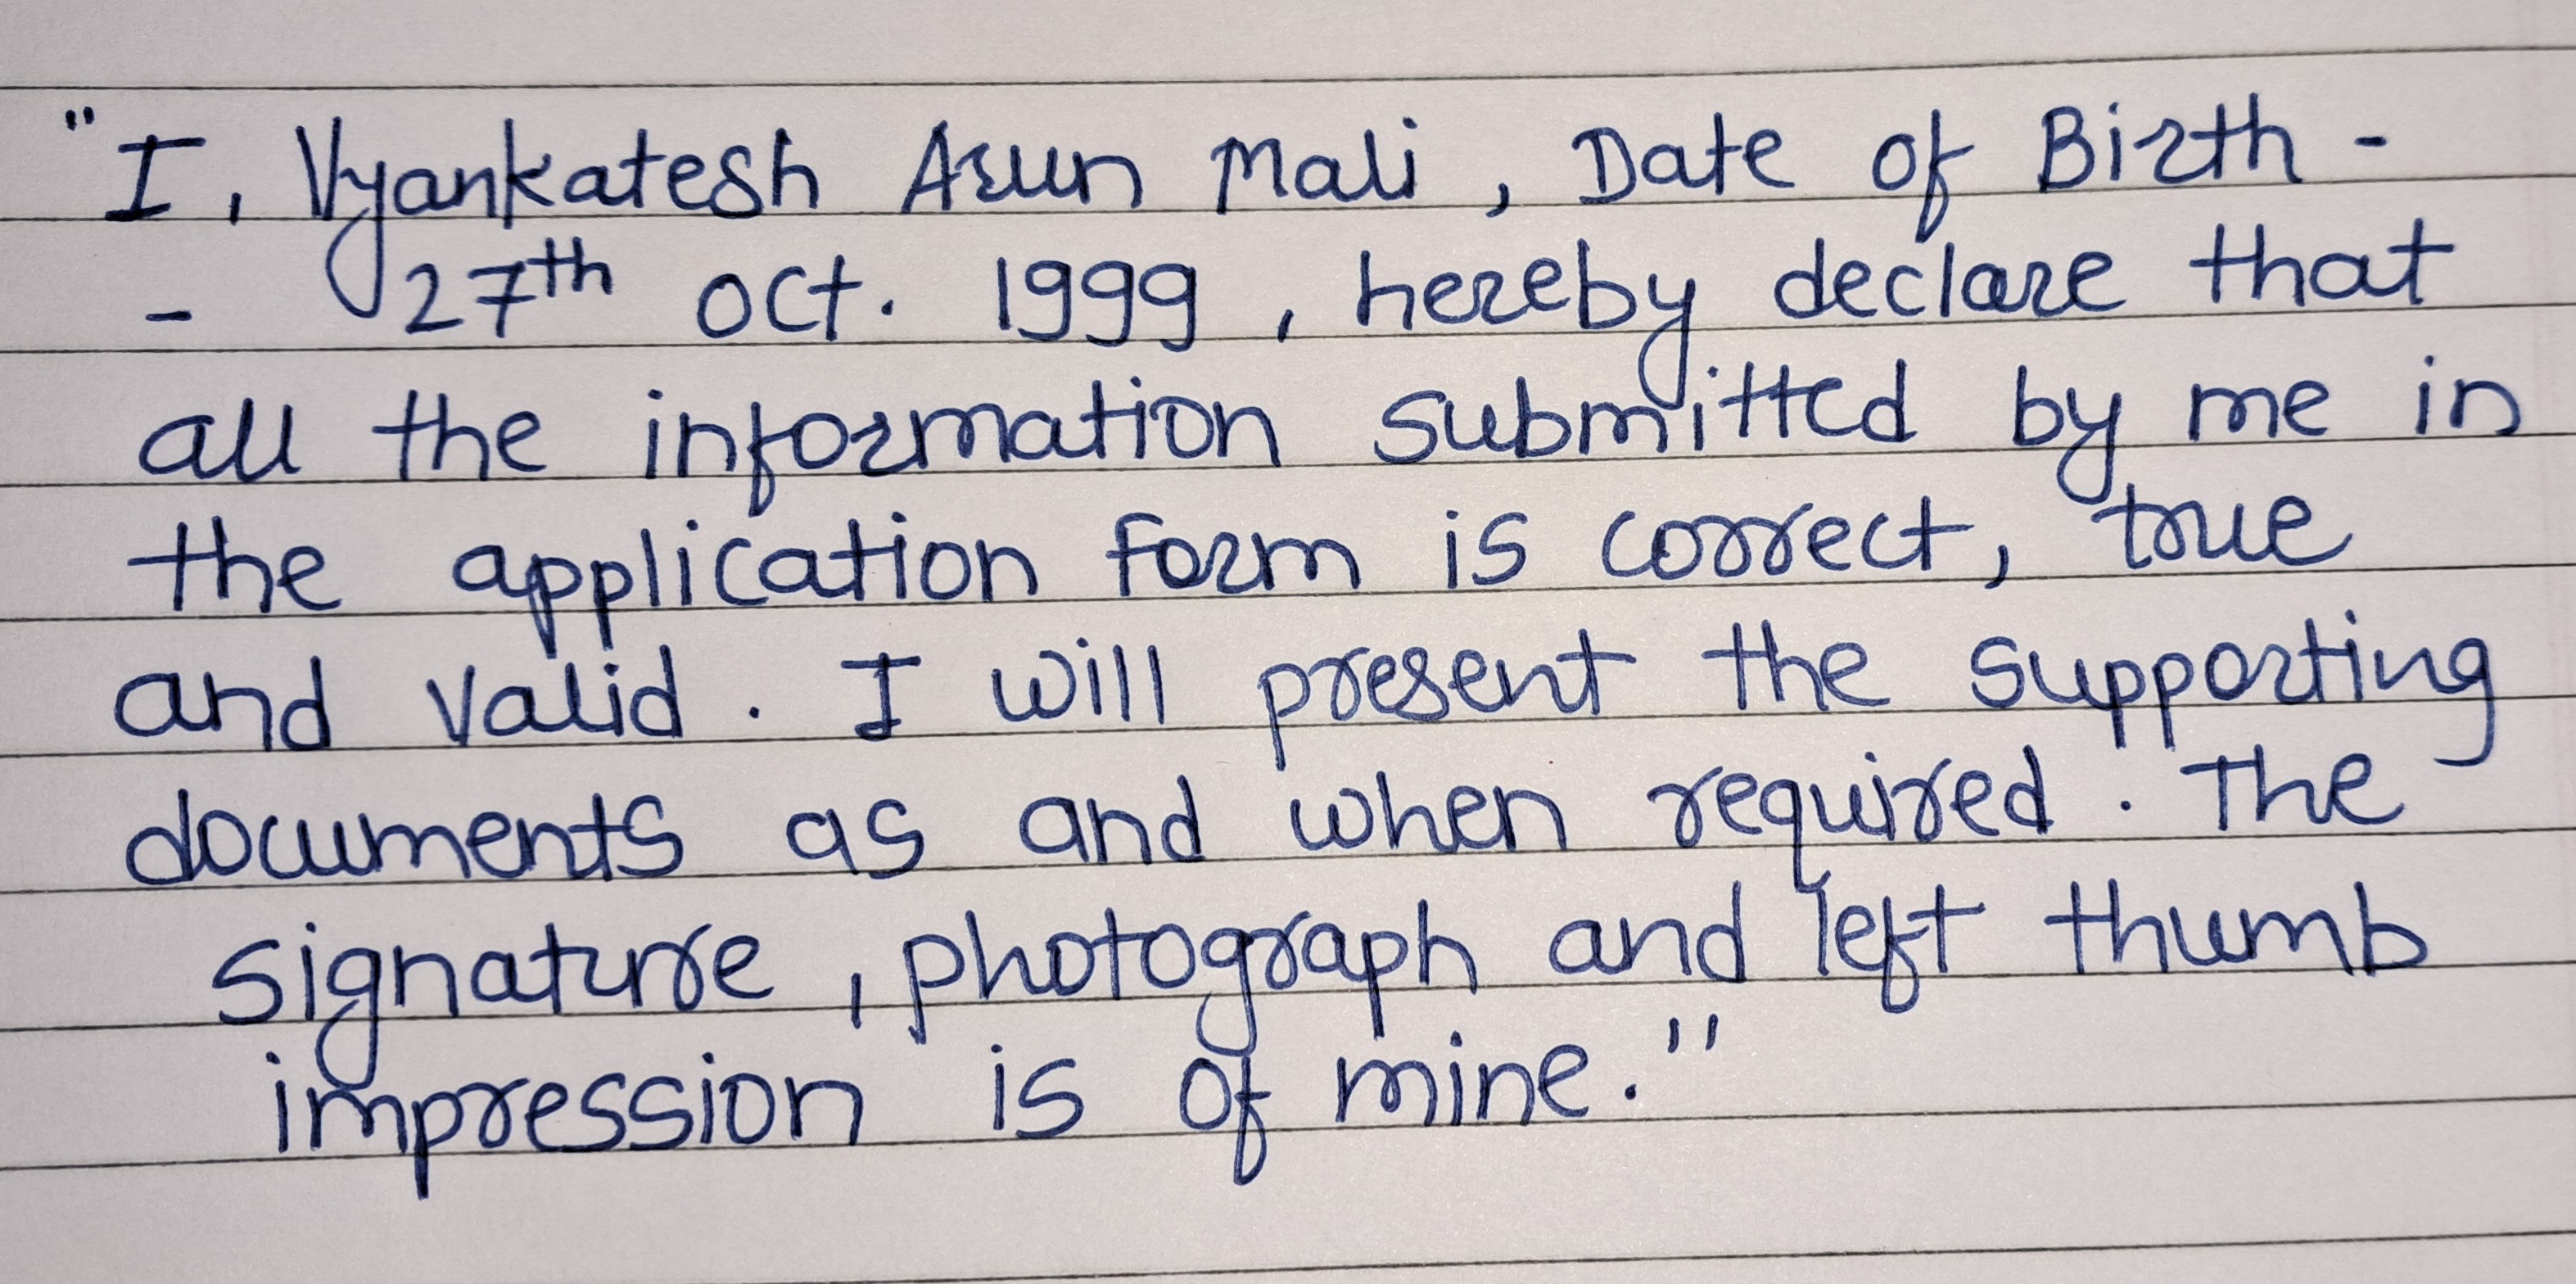 "I, Vyankatesh Arun Mali, Date of Birth -
- 27th oct. 1999, hereby declare that
all the information submitted by me in
the application form is correct, true
and valid. I will present the supporting
documents as and when required. The
signature, photograph and left thumb
impression is of mine."